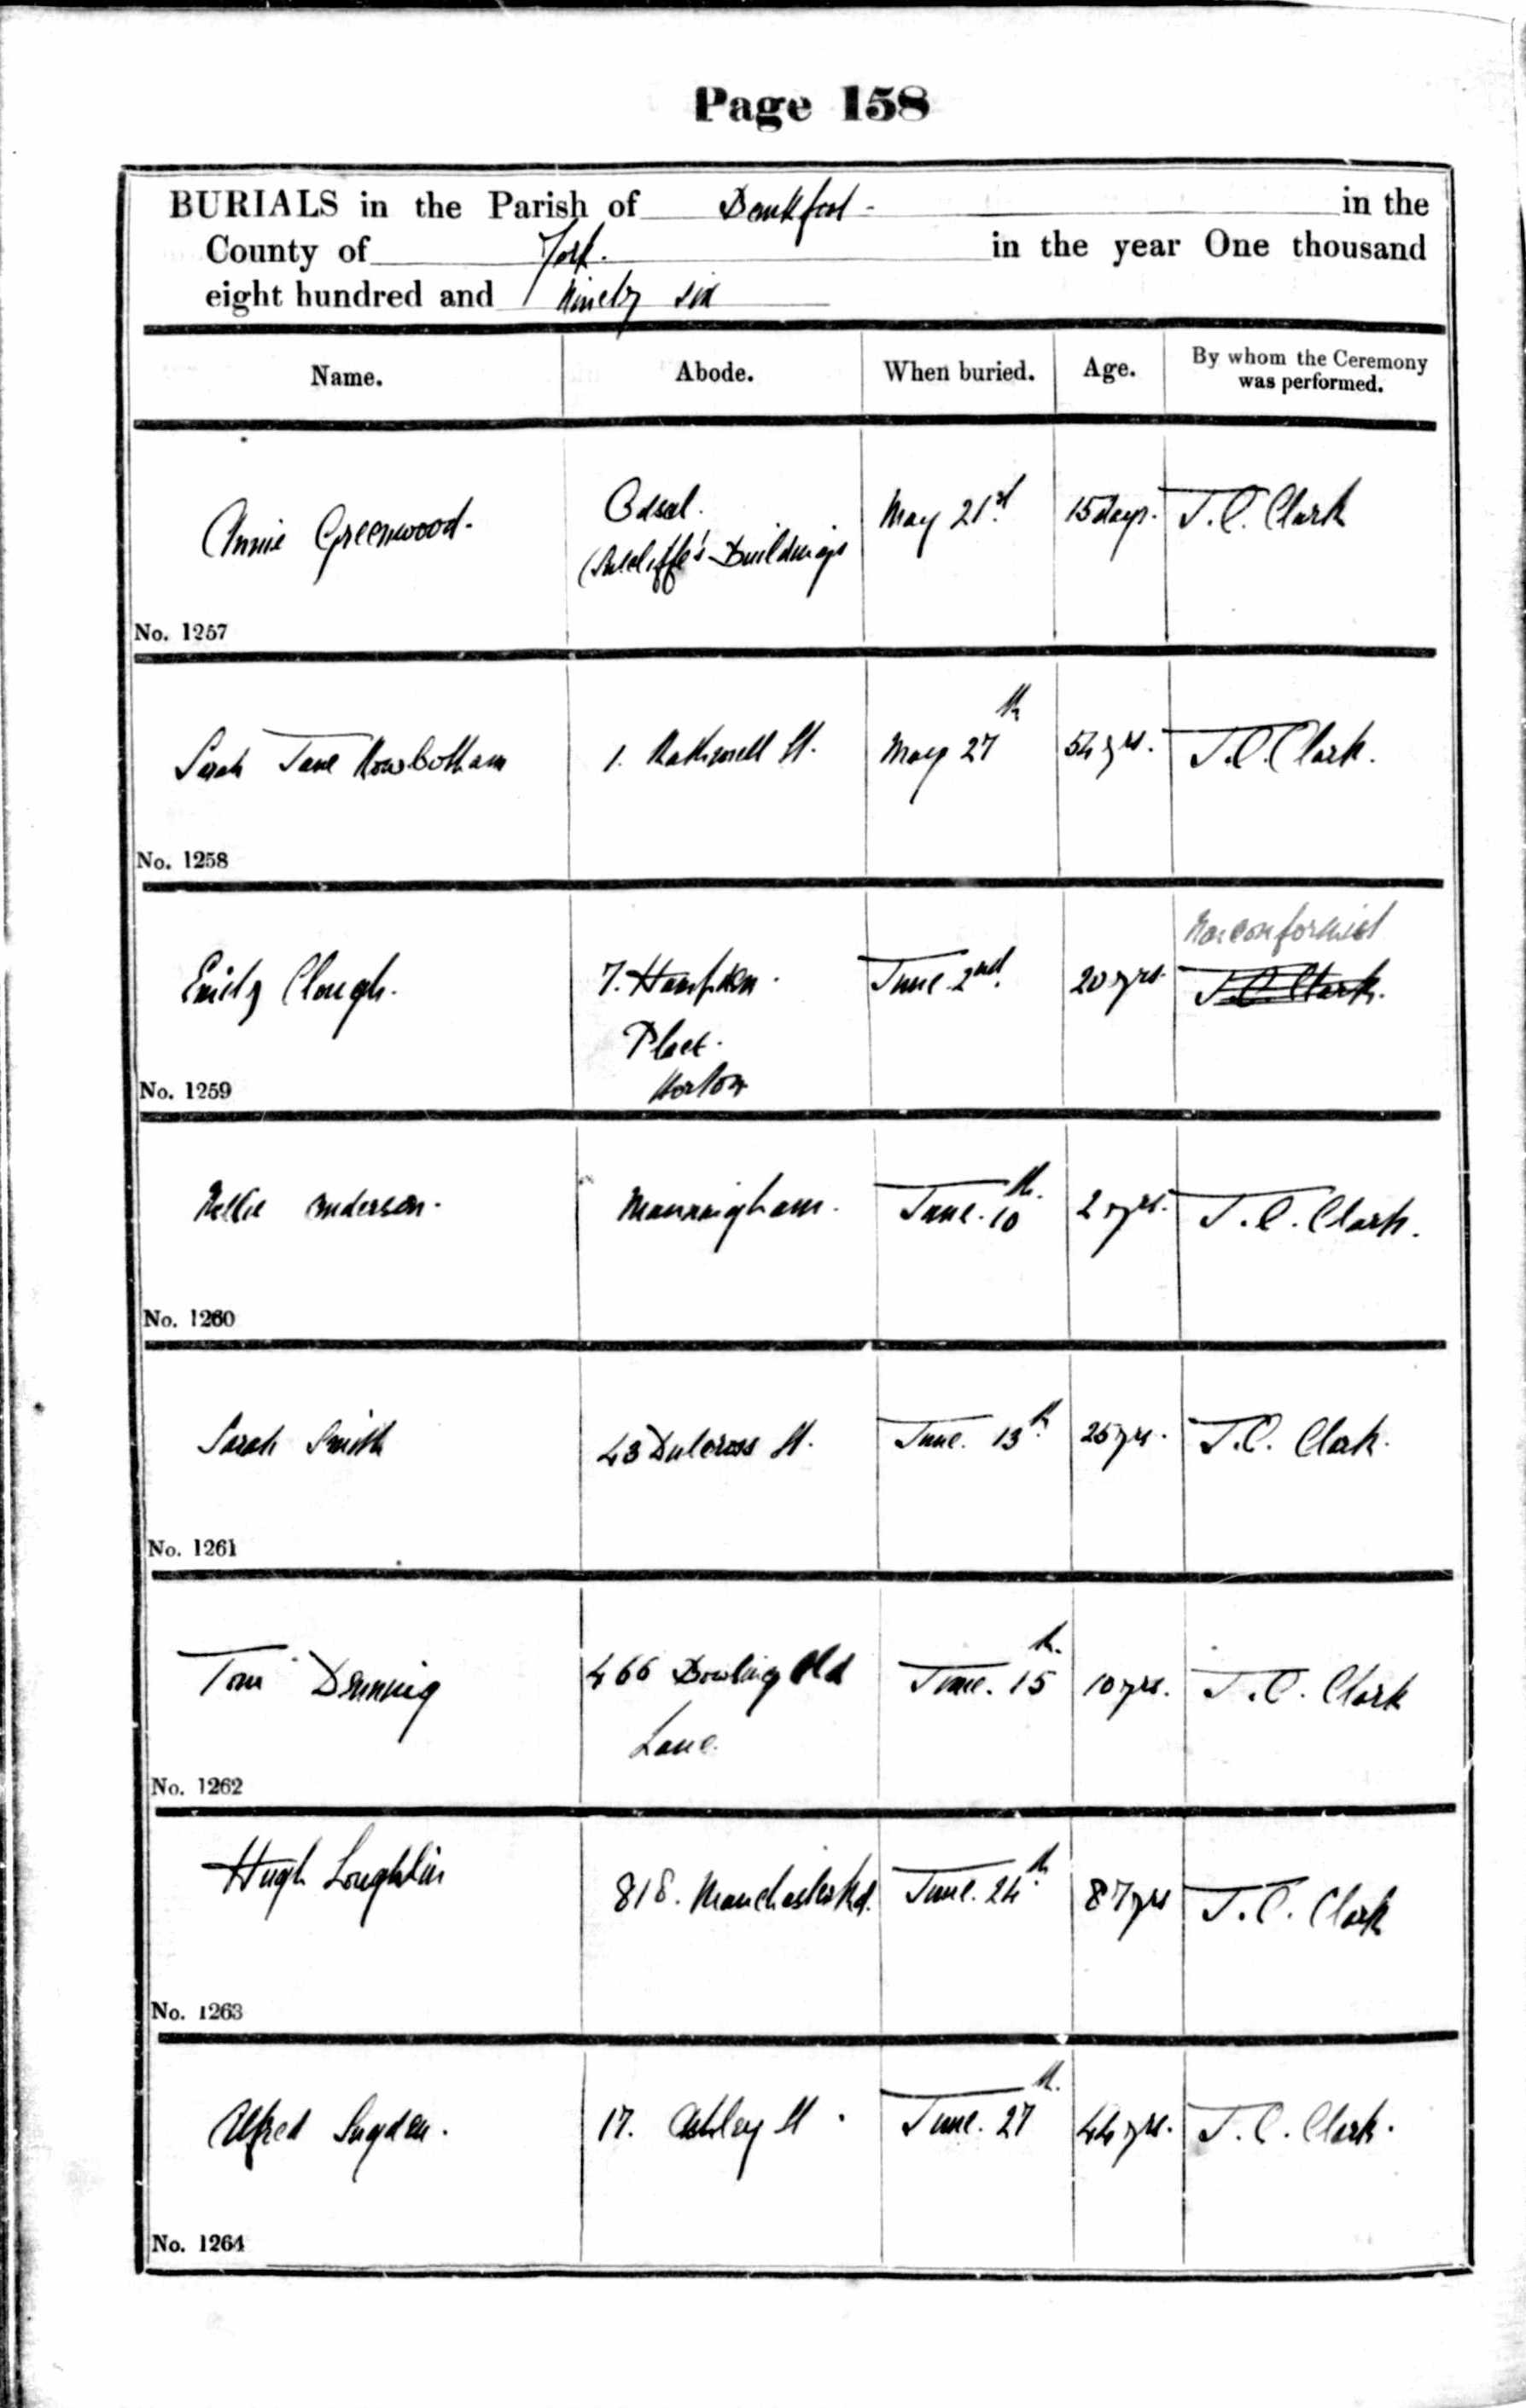 Page 158
BURIALS in the Parish of Bankfoot - in the
County of York. in the year One thousand
eight hundred and Ninety six
Name. Abode. When buried. Age. By whom the Ceremony was performed.
Annie Greenwood. Odsal. (Sutcliffe's Buildings May 21st 15 days. J. C. Clark
No. 1257
Sarah Jane Rowbotham 1. Rothwell St. May 27th 54 yrs. J. C. Clark.
No. 1258
Nonconformist
Emily Clough. 7. Hampden. Place. Horton June 2nd. 20 yrs. J. C. Clark.
No. 1259
Nellie Anderson. Manningham. June. 10th. 2 yrs. J. C. Clark.
No. 1260
Sarah Smith 43 Dulcross St. June. 13th. 25 yrs. J. C. Clark.
No. 1261
Tom Denning 466 Bowling Old Lane. June. 15th. 10 yrs. J. C. Clark
No. 1262
Hugh Loughlin 818. Manchester Rd. June. 24th. 87 yrs J. C. Clark
No. 1263
Alfred Sugden. 17. Ashley St. June. 27th. 44 yrs. J. C. Clark.
No. 1264